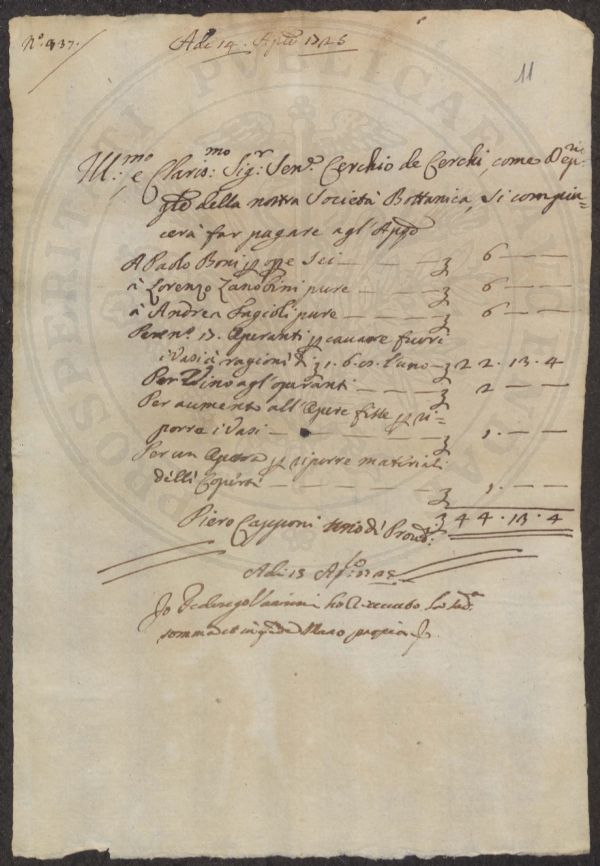 N.º 337.
Adi 14. Aple 1725
11
Ill.mo, e Claris.mo Sig.r Sen.r Cerchio de Cerchi, come Dep.-
della nostra Società Bottanica, si compia=
cerà far pagare agl'
A Paolo Boni opre Sei — — 6 — —
à Lorenzo Zanobini pure — — 6 — —
à Andrea Fagioli pure — — 6 — —
Per n.º 17. Operanti cavare fuori
i Vasi à ragioni di 1.6.8 l'uno — 22.13.4
Per Vino agl'operanti — — 2 — —
Per aumento all'Opere fisse ri=
porre i Vasi — — 1. — —
Per un Opera riporre materiali
delli Coperti — — 1. — —
44.13.4
Piero Capponi uno di Provd.:
Adi: 15 Ap.º 1725
Io ho Riceuto la sud.a
somma mano propria
PROSPERITATI PUBLICAE